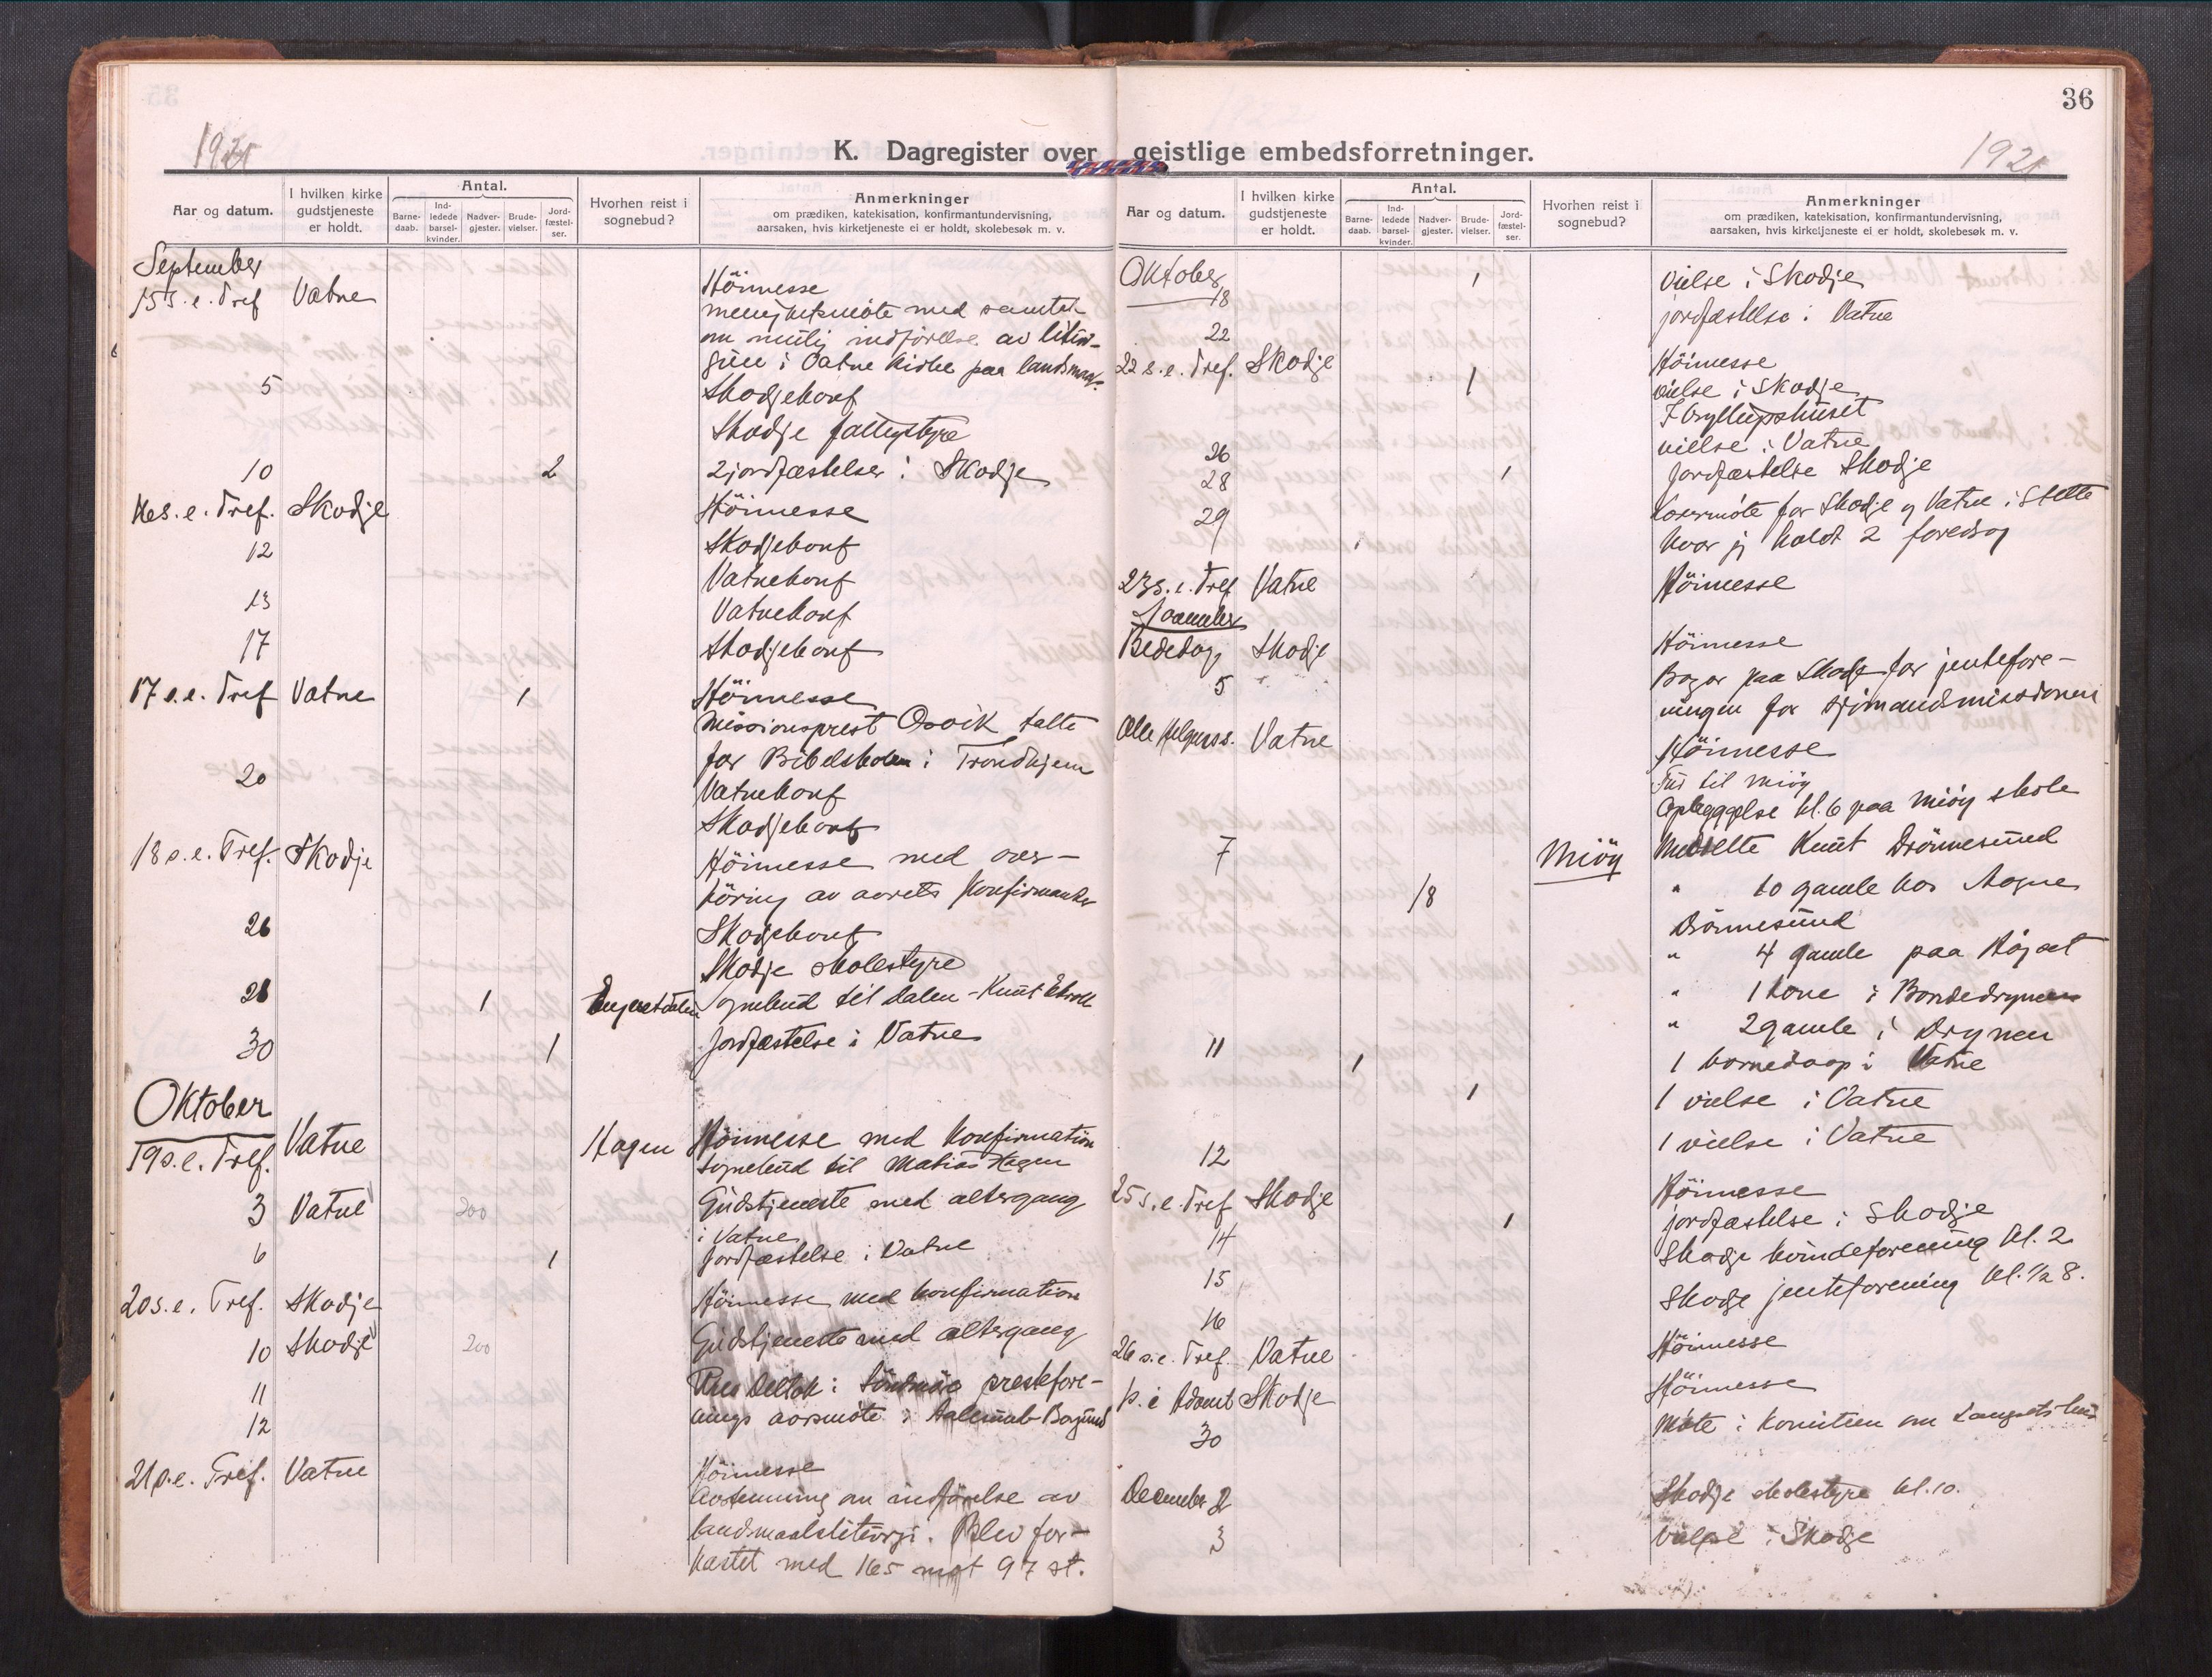 36
1921
1921
K. Dagregister over geistlige embedsforretninger.
Aar og datum.
I hvilken kirke gudstjeneste er holdt.
Antal.
Barne-daab.
Ind-ledede barsel-kvinder.
Nadver-gjester.
Brude-vielser.
Jord-fæstel-ser.
Hvorhen reist i sognebud?
Anmerkninger
om prædiken, katekisation, konfirmantundervisning,
aarsaken, hvis kirketjeneste ei er holdt, skolebesøk m. v.
September
15 s. e. Tref Vatne Höimesse
menighetsmöte med samtale
om mulig indförelse av litur-
gien i Vatne kirke paa landsmaal.
5 Skodjekonf
Skodje fattigstyre
10 2 2 jordfæstelser i Skodje
16 s. e. Tref. Skodje Höimesse
12 Skodjekonf
Vatnekonf
13 Vatnekonf
17 Skodjekonf
17 s. e. Tref Vatne 1 Höimesse
Missionsprest Osvik talte
for Bibelskolen i Trondhjem
20 Vatnekonf
Skodjekonf
18 s. e. Tref. Skodje Höimesse med over-
höring av aarets Konfirmanter
26 Skodjekonf
Skodje skolestyre
28 1 Sognebud til Dalen - Knut
30 1 Jordfæstelse i Vatne
Oktober
19 s. e. Tref. Vatne Hagen Höimesse med Konfirmation
Sognebud til Matias Hagen
3 Vatne 200 Gudstjeneste med altergang
i Vatne
6 1 Jordfæstelse i Vatne
20 s. e. Tref. Skodje Höimesse med konfirmation
10 Skodje 200 Gudstjeneste med altergang
11 Deltok i Söndmöre prestefore-
12 nings aarsmöte i Aalesund-Borgund
21 s. e. Tref. Vatne Höimesse
Avstemning om indförelse av
landsmaalsliturgi. Blev for-
kastet med 165 mot 97 st.
Aar og datum.
I hvilken kirke gudstjeneste er holdt.
Antal.
Barne-daab.
Ind-ledede barsel-kvinder.
Nadver-gjester.
Brude-vielser.
Jord-fæstel-ser.
Hvorhen reist i sognebud?
Anmerkninger
om prædiken, katekisation, konfirmantundervisning,
aarsaken, hvis kirketjeneste ei er holdt, skolebesøk m. v.
Oktober
18 1 Vielse i Skodje
22 jordfæstelse i Vatne
22 s. e. Tref. Skodje Höimesse
1 vielse i Skodje
I bryllupshuset
26 vielse i Vatne
28 1 Jordfæstelse Skodje
29 Lærermöte for Skodje og Vatne i Stette
hvor jeg holdt 2 foredrag
23 s. e. Tref Vatne Höimesse
November
Bededag Skodje Höimesse
5 Bazar paa Skodje for jentefore-
ningen for sjömandsmissionen
Alle Helgenss. Vatne Höimesse
Tur til Miöy
Opbyggelse kl. 6 paa Miöy skole
7 Miöy Knut Drönnesund
18 " 10 gamle hos Aagne
Drönnesund
" 4 gamle paa
" 1 kone i
" 2 gamle i Drynen
11 1 1 barnedaap i Vatne
1 1 vielse i Vatne
12 1 vielse i Vatne
25 s. e. Tref Skodje Höimesse
14 1 jordfæstelse i Skodje
15 Skodje kvindeforening kl. 2
16 Skodje jenteforening kl. 1/2 8.
26 s. e. Tref. Vatne Höimesse
1 s. i Advent Skodje Höimesse
30 Möte i Komiteen om
December 2 Skodje skolestyre kl. 10.
3 Vielse i Skodje